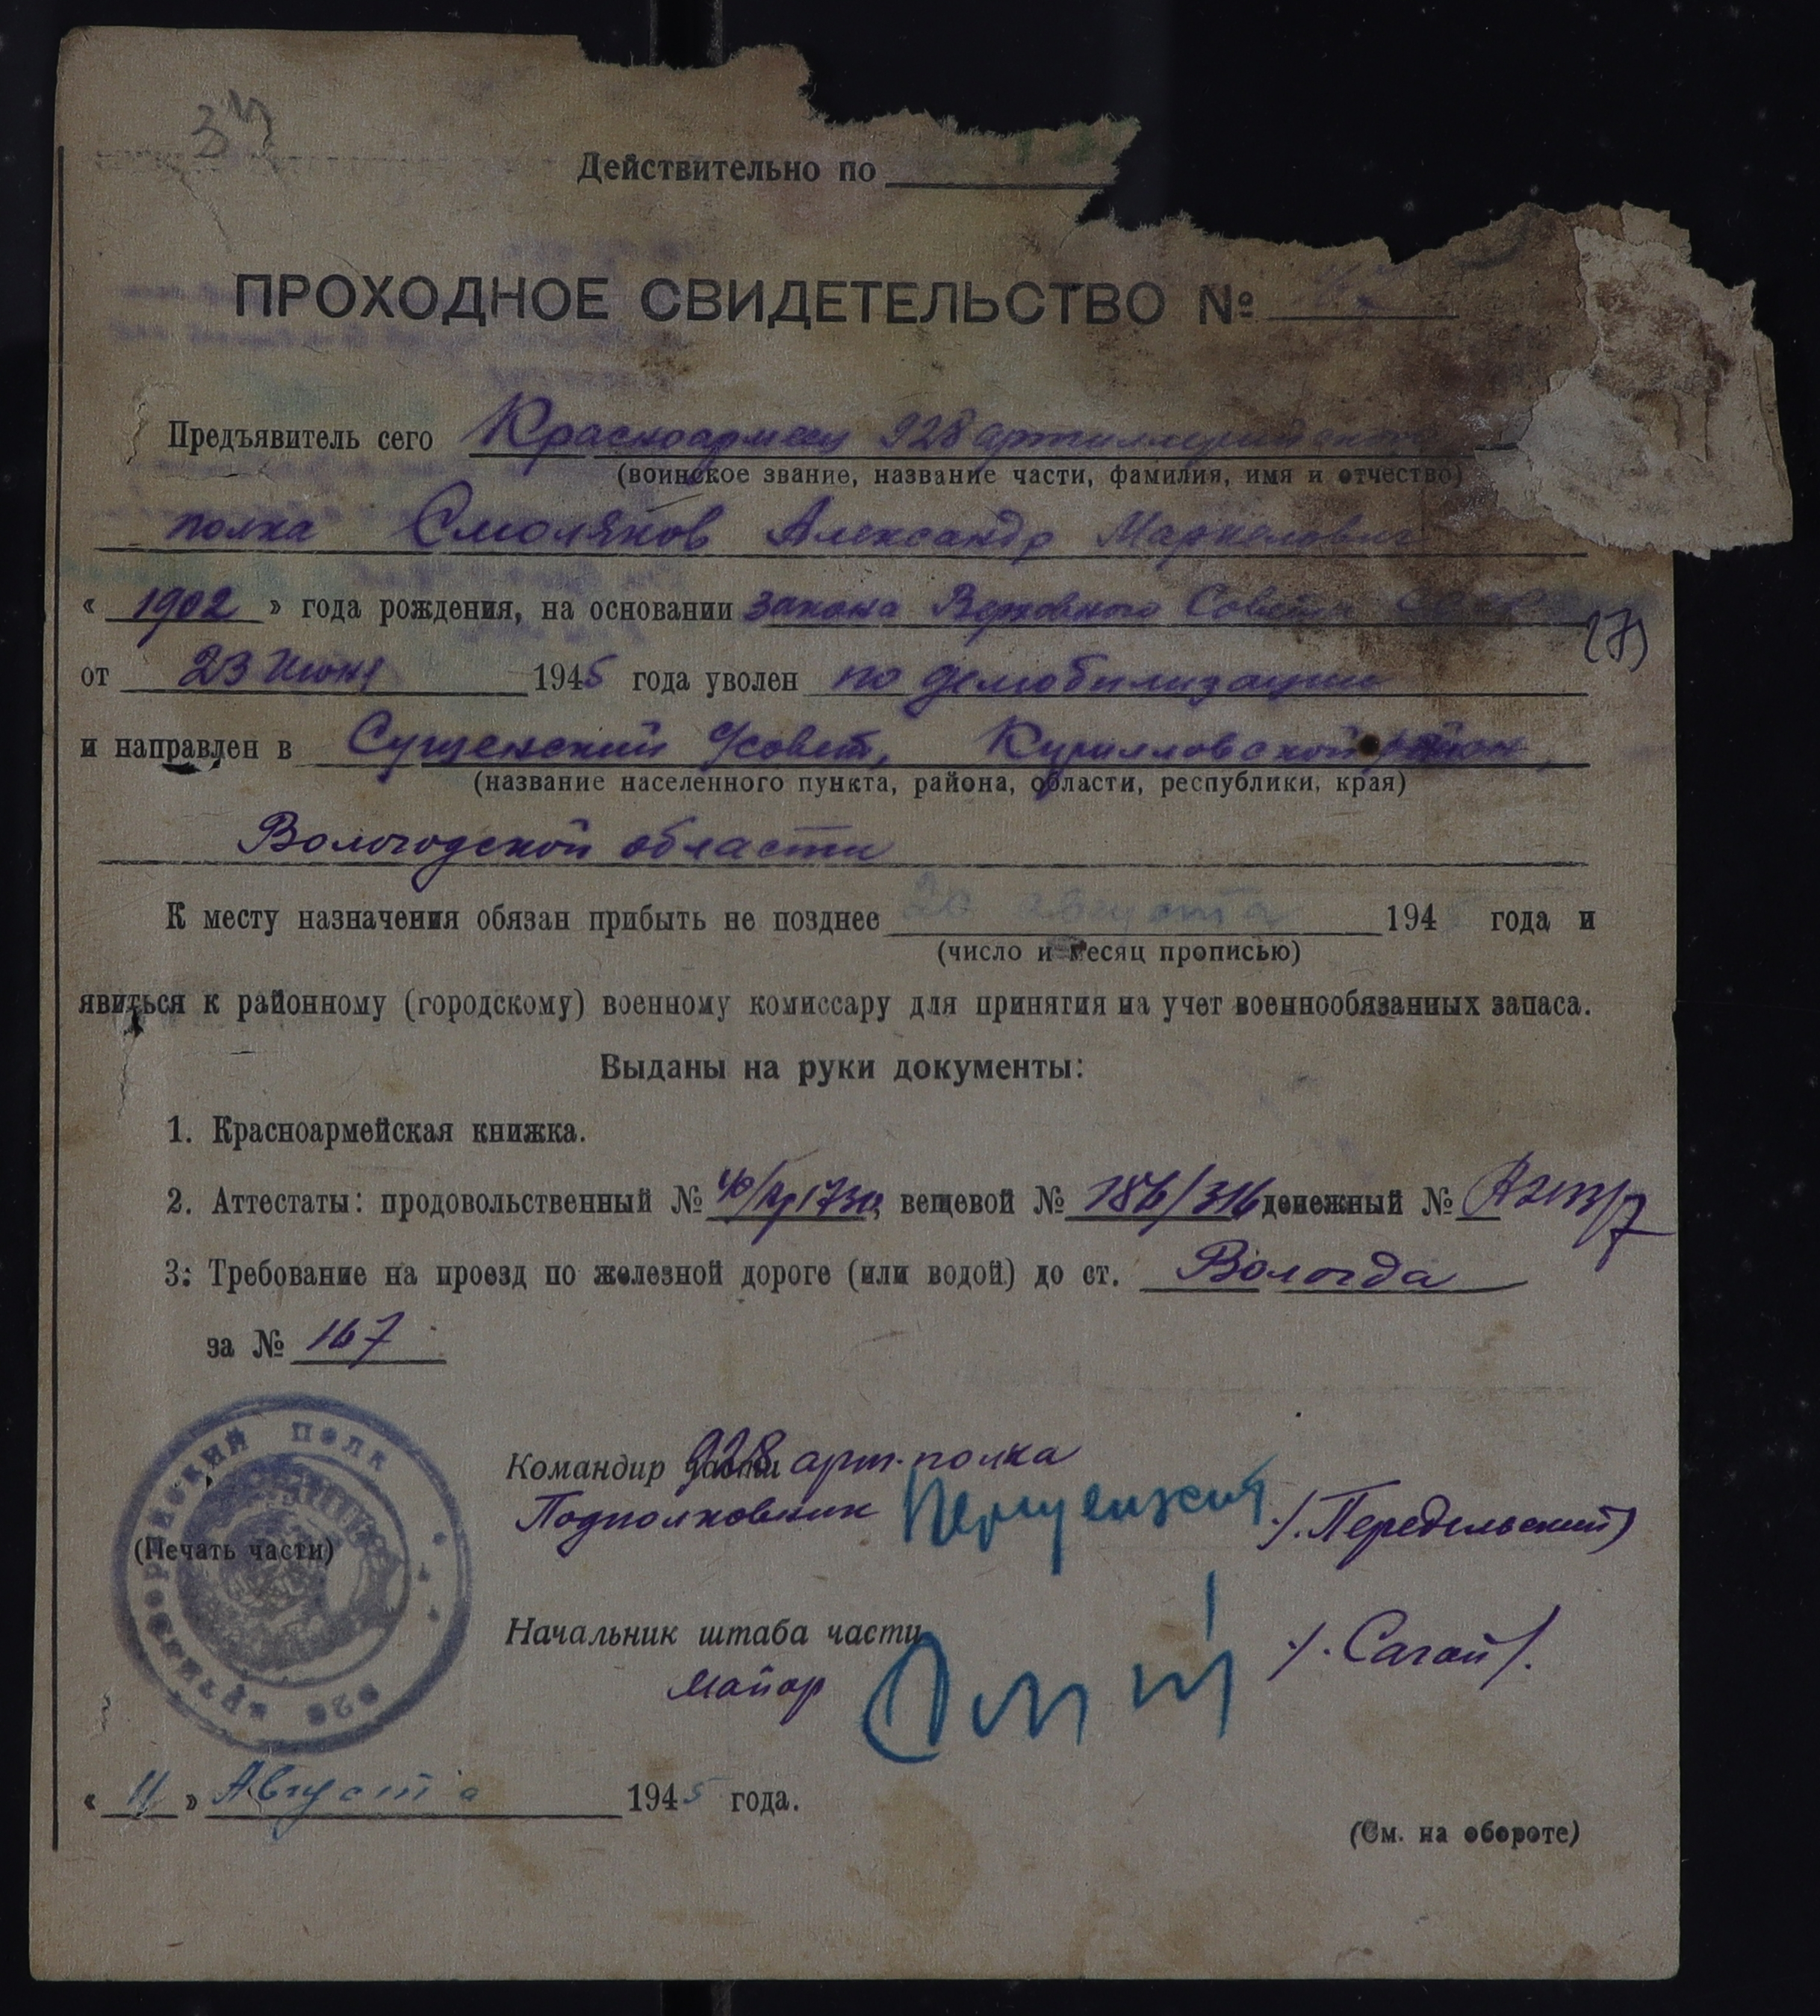 34
Действительно по
ПРОХОДНОЕ СВИДЕТЕЛЬСТВО №
Предъявитель сего Красноармеец 928 артиллерийского
(воинское звание, название части, фамилия, имя и отчество)
полка Смоляков Александр Маркелович
« 1902 » года рождения, на основании закона Верховного Совета СССР
(7)
от 23 июня 1945 года уволен по демобилизации
и направлен в Сущенский с/совет, Кирилловской район,
(название населенного пункта, района, области, республики, края)
Вологодской области
К месту назначения обязан прибыть не позднее 20 августа 194 года и
(число и месяц прописью)
явиться к районному (городскому) военному комиссару для принятия на учет военнообязанных запаса.
Выданы на руки документы:
1. Красноармейская книжка.
2. Аттестаты: продовольственный № вещевой № 186/316 денежный №
3. Требование на проезд по железной дороге (или водой) до ст. Вологда
за № 167
АРТИЛЛЕРИЙСКИЙ ПОЛК 928
(Печать части)
Командир части 928 арт. полка
Подполковник /.Передельский/
Начальник штаба части
майор /. Сагай/.
« 11 » Августа 1945 года.
(См. на обороте)